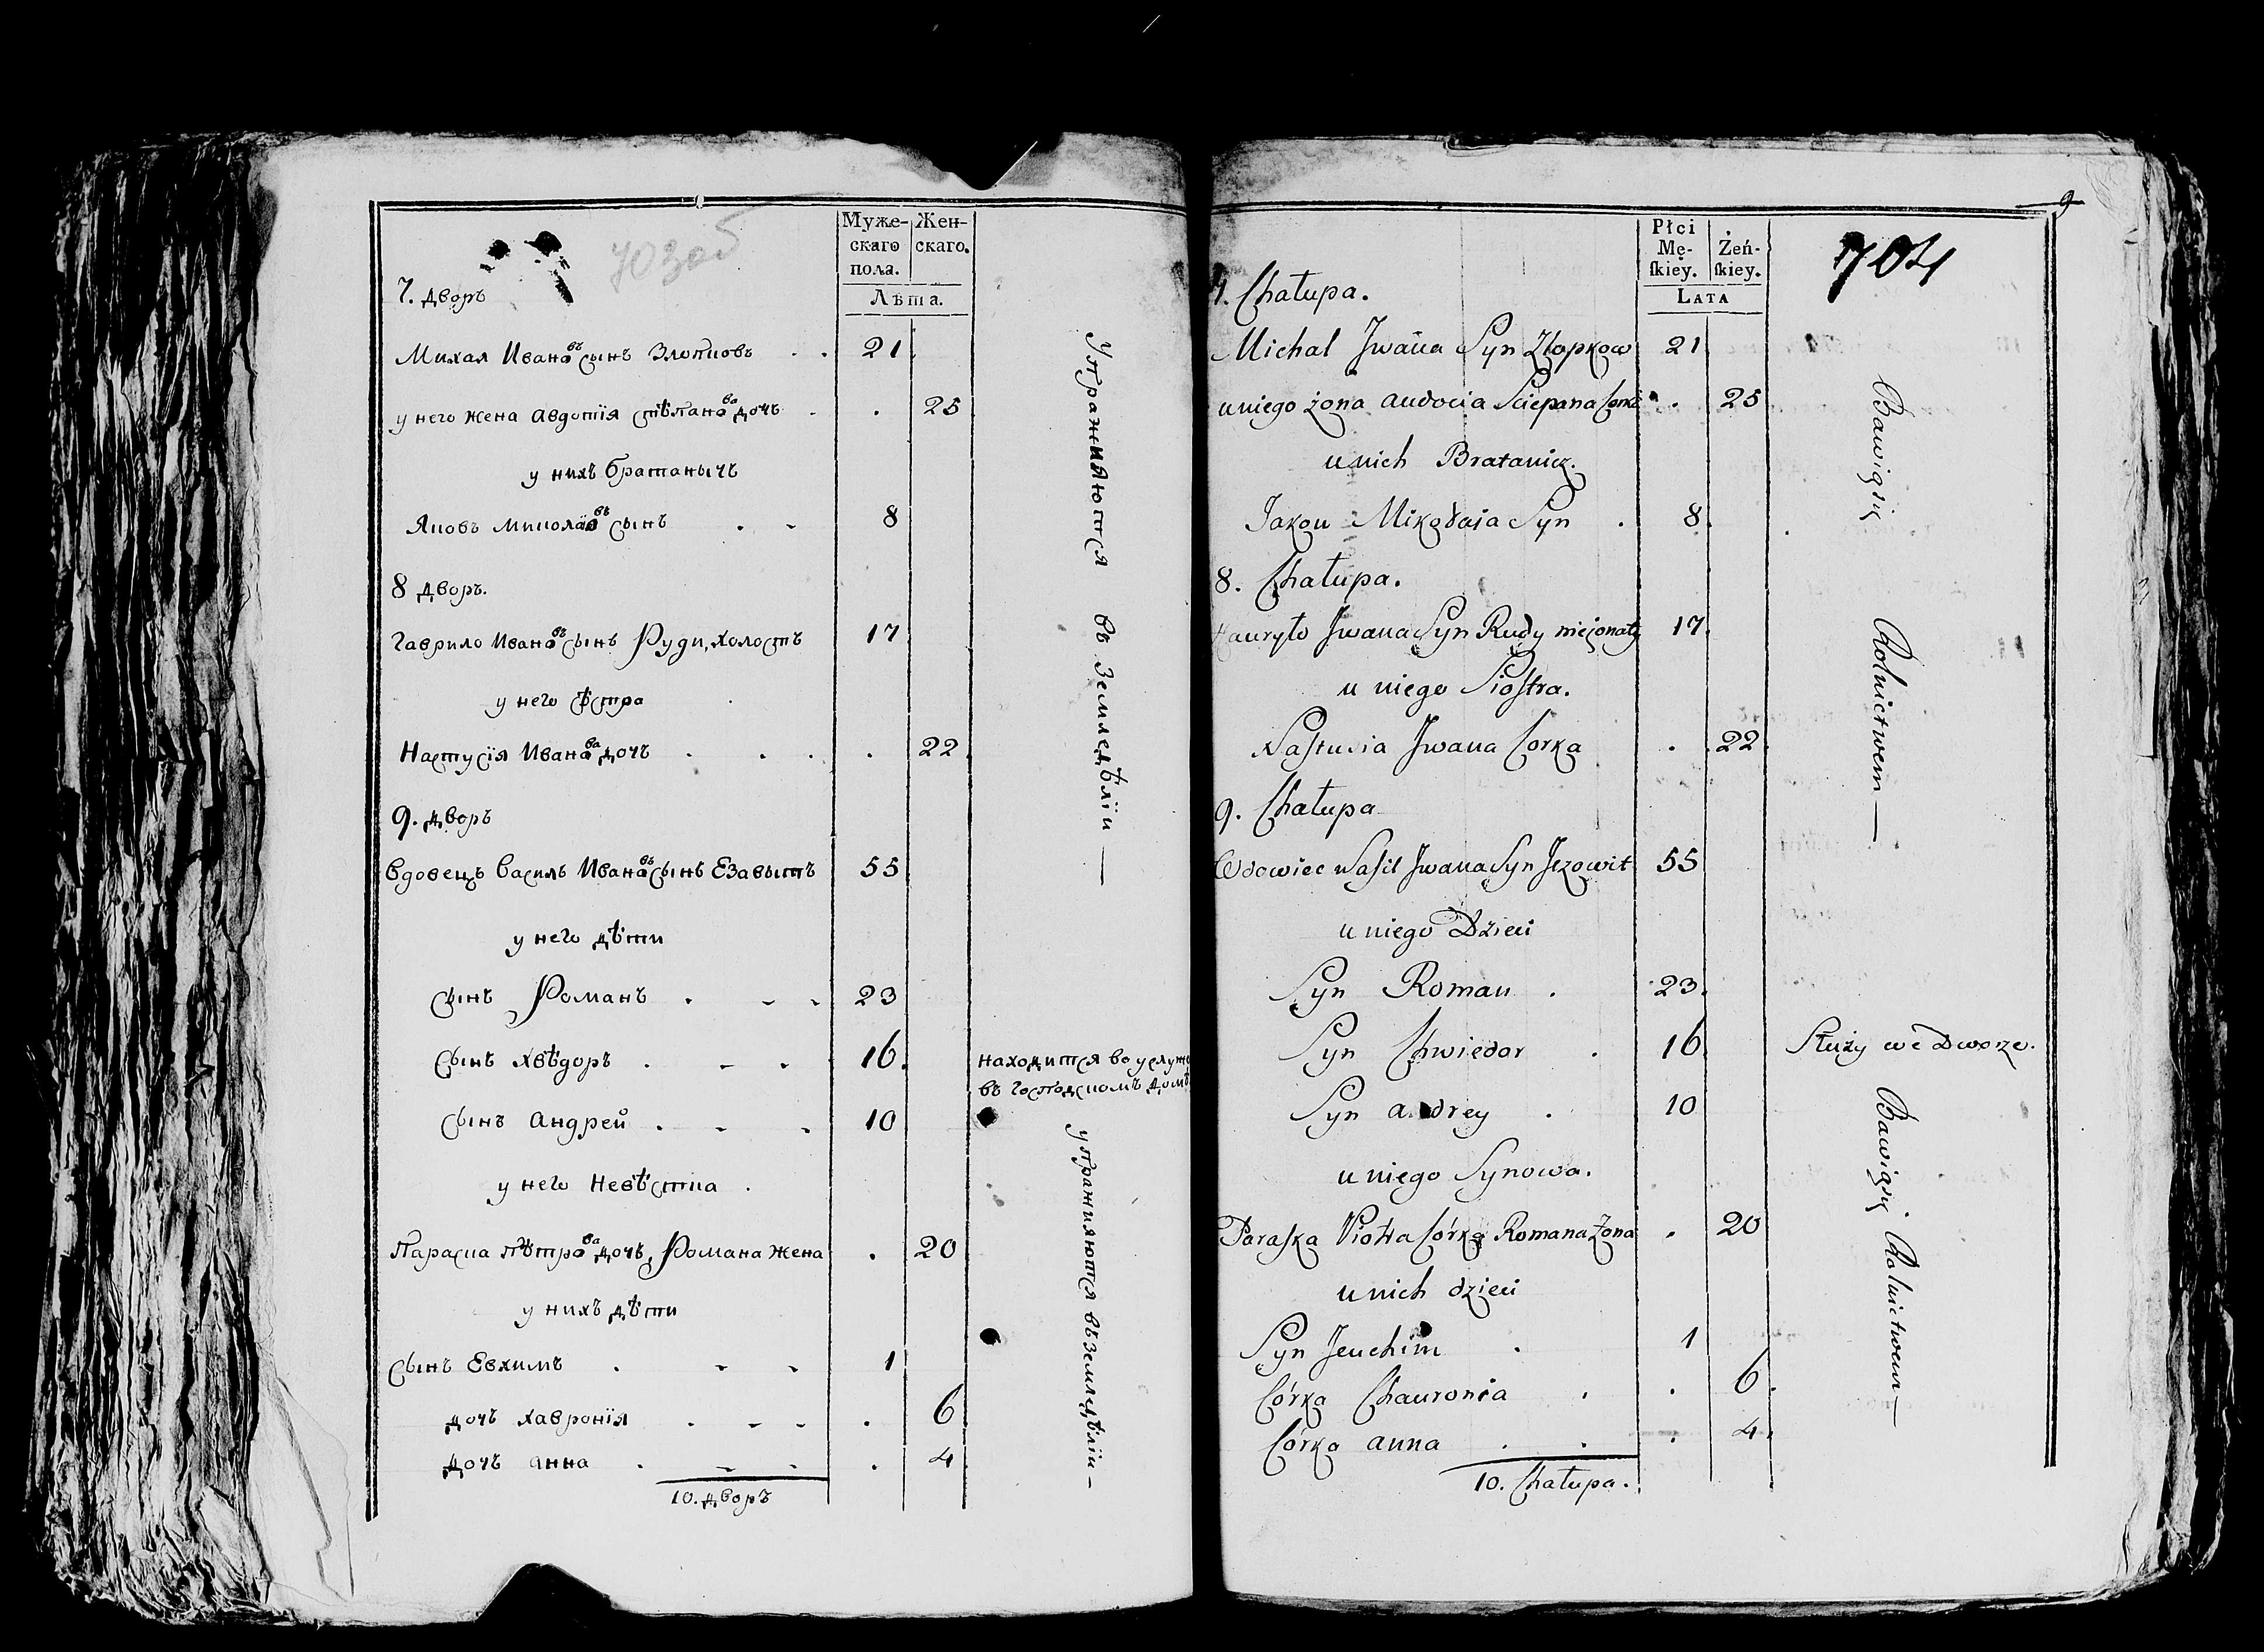 703 об
Муже-
скаго
пола.
Жен-
скаго.
Лѣта.
7. дворъ
Михал Ивановъ сынъ Злопковъ . . 21
у него жена Авдотїя Стѣпанова дочь . . 25
у нихъ братаничъ
Яковъ Миколаевъ сынъ . . 8
8 дворъ.
Гаврило Ивановъ сынъ Руди, холостъ 17
у него сѣстра
Настусїя Иванова дочь . . . . 22
9. дворъ
Вдовецъ Василь Ивановъ сынъ Езавытъ 55
у него дѣти
сынъ Романъ . . . 23
сынъ Хвѣдоръ . . . 16.
сынъ Андрей . . . 10
у него невѣстка .
Параска Пѣтрова дочь, Романа жена . 20
у нихъ дѣти
сынъ Евхимъ . . . 1
дочь Хавронїя . . . . . 6
дочь Анна . . . . 4
10. дворъ
Упражняются въ Земледѣлїи —
находится во услуж
въ господскомъ домѣ
упражняются въ земледѣлїи —
9
704
Płci
Mę-
ſkiey.
Żeń-
ſkiey.
LATA
7. Chałupa.
Michal Jwana Syn Złopkow 21
u niego żona Audocia Sciepana Corka . 25
u nich Bratanicz.
Jakou Mikołaia Syn . 8.
8. Chałupa.
Hauryło Jwana Syn Rudy nieżonaty 17.
u niego Sioſtra.
Naſtusia Jwana Corka . 22.
9. Chałupa
Wdowiec Waſil Jwana Syn Jezowit 55
u niego Dzieci
Syn Roman . 23.
Syn Chwiedor . 16
Syn Andrey . 10
u niego Synowa.
Paraſka Piotra Córka Romana Żona . 20
u nich dzieci
Syn Jeuchim . 1
Córka Chauronia . . 6.
Córka Anna . . . 4.
10. Chałupa.
Bawią się Rolnictwem —
Służy we Dworze.
Bawią się Rolnictwem —